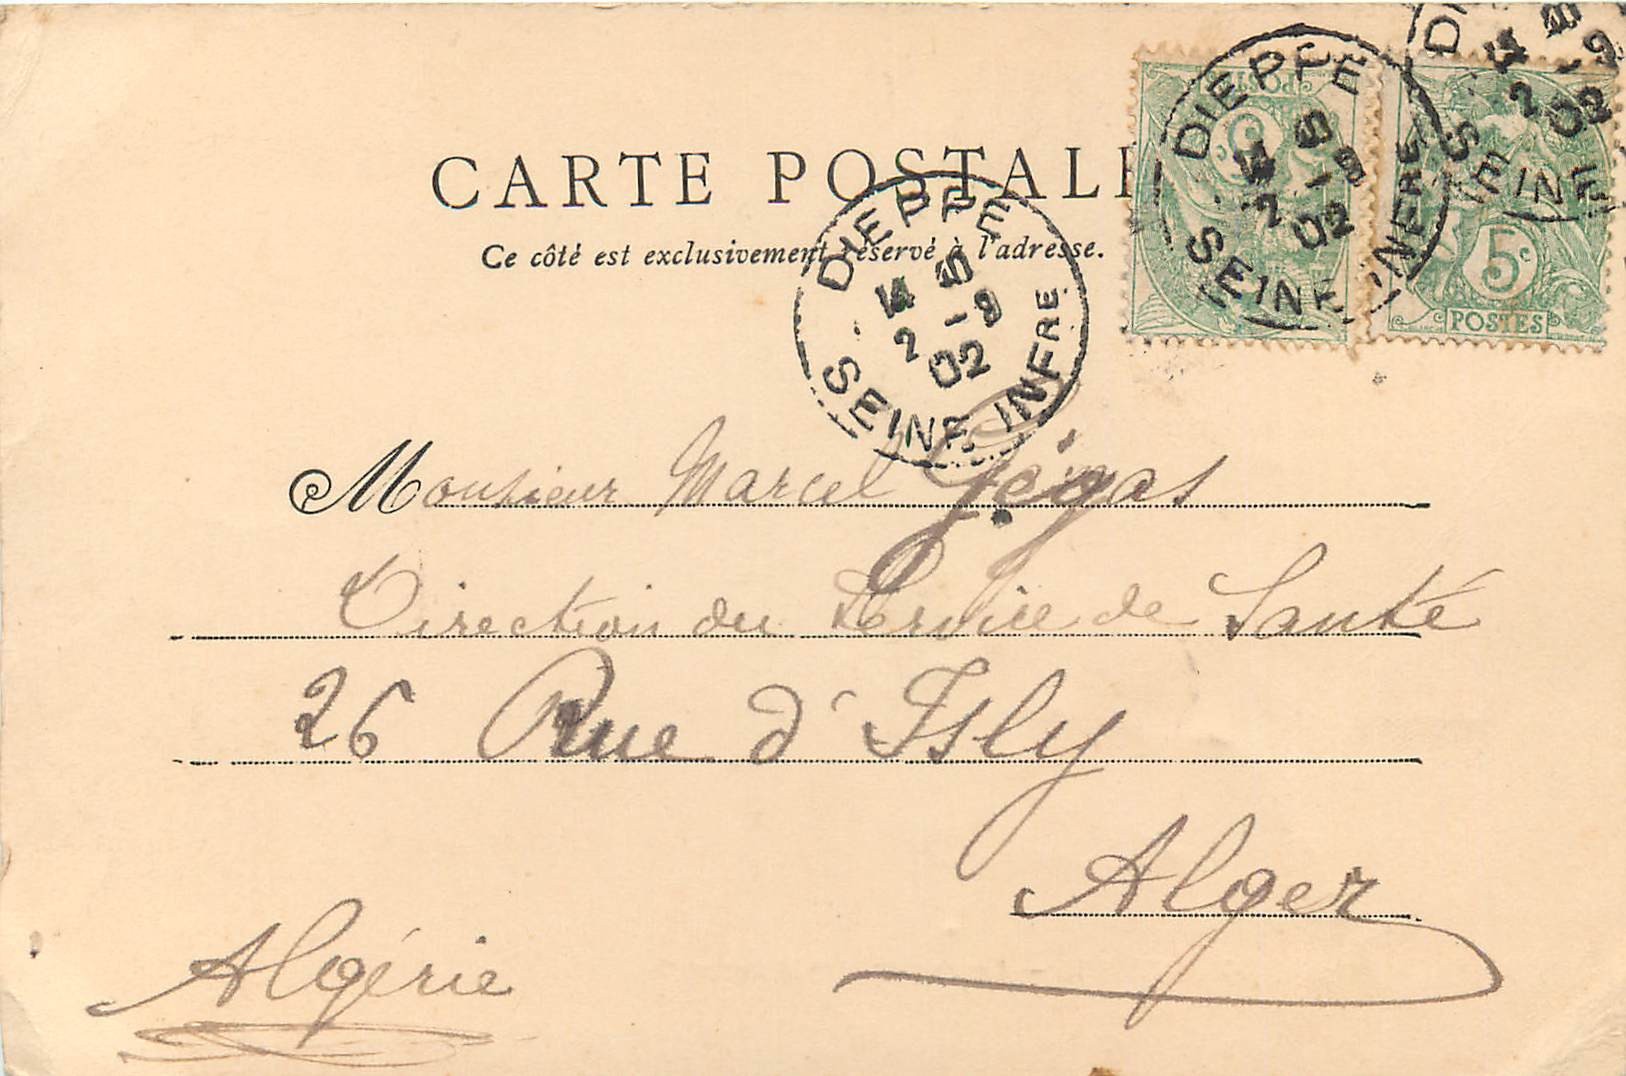 CARTE POSTALE
Ce côté est exclusivement réservé à l'adresse.
DIEPPE
14 2 -9 02
SEINE INFRE
DIEPPE
14 2 -9 02
SEINE INFRE
14 2 -9 02
SEINE
POSTES
5c
POSTES
Monsieur Marcel
Direction du Service de Santé
26 Rue d'Isly
Alger
Algérie